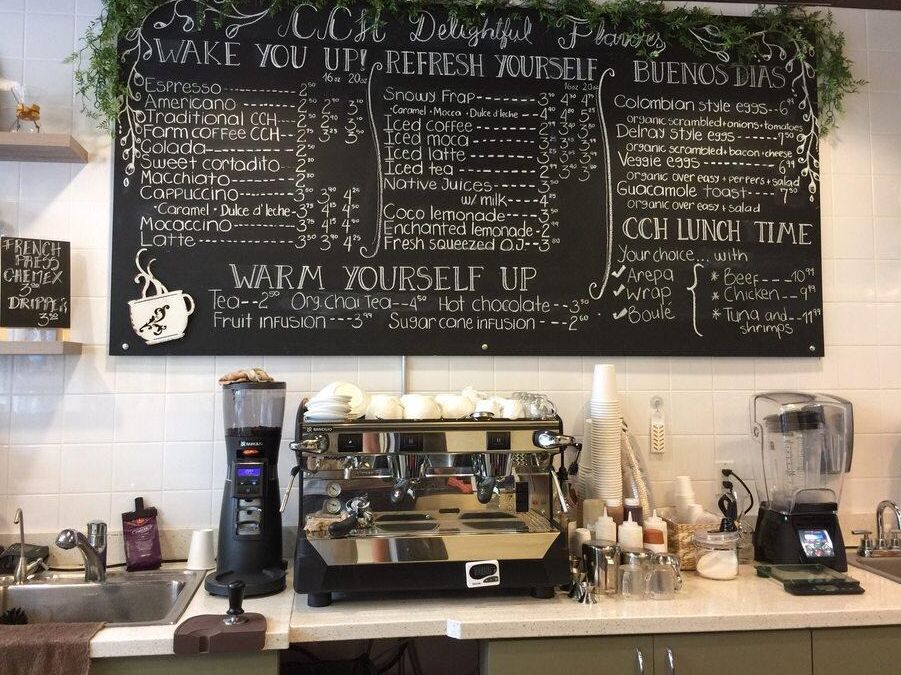 CCH Delightful Flavors
WAKE YOU UP!
16oz 20oz
Espresso 2⁵⁰
Americano 2⁵⁰
Traditional CCH
Farm coffee CCH
Colada
Sweet cortadito
Macchiato
Cappuccino 3⁵⁰ 3⁹⁵ 4²⁵
•Caramel • Dulce d' leche
Mocaccino 3⁷⁵ 4¹⁵ 4⁵⁰
Latte 3⁵⁰ 3⁹⁵ 4²⁵
REFRESH YOURSELF
16oz 20oz
Snowy Frap
•Caramel • Mocca • Dulce d leche
Iced coffee
Iced moca
Iced latte
Iced tea
Native Juices 3⁵⁰
w/ milk
Coco lemonade 3⁵⁰
Enchanted lemonade 2⁹⁹
Fresh squeezed OJ 3⁸⁰
BUENOS DIAS
Colombian style eggs 6⁹⁹
organic scrambled + onions + tomatoes
Delray style eggs 7⁵⁰
organic scrambled + bacon + cheese
Veggie eggs 6⁹⁹
organic over easy + peppers + salad
Guacamole toast 7⁵⁰
organic over easy + salad
CCH LUNCH TIME
Your choice... with
✓ Arepa
✓ Wrap
✓ Boulé
* Beef 10⁹⁹
* Chicken 9⁹⁹
* Tuna and 11⁹⁹
shrimps
WARM YOURSELF UP
Tea--2⁵⁰ Org.chai Tea--4⁵⁰ Hot chocolate---3⁵⁰
Fruit infusion---3⁹⁹ Sugar cane infusion---2⁶⁰
FRENCH
PRESS
CHEMEX
3⁵⁰
DRIPPER
3⁵⁰
RANCILIO
RANCILIO